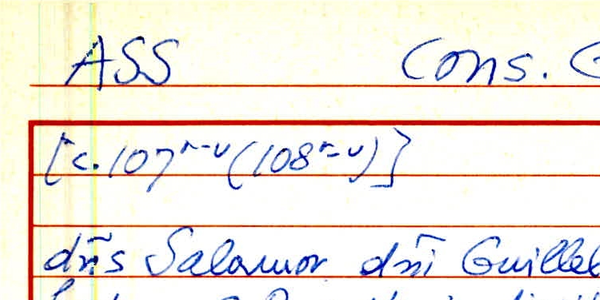 ASS Cons. G
[c. 107 r-v (108 r-v)]
dñs Salamon dñi Guillel